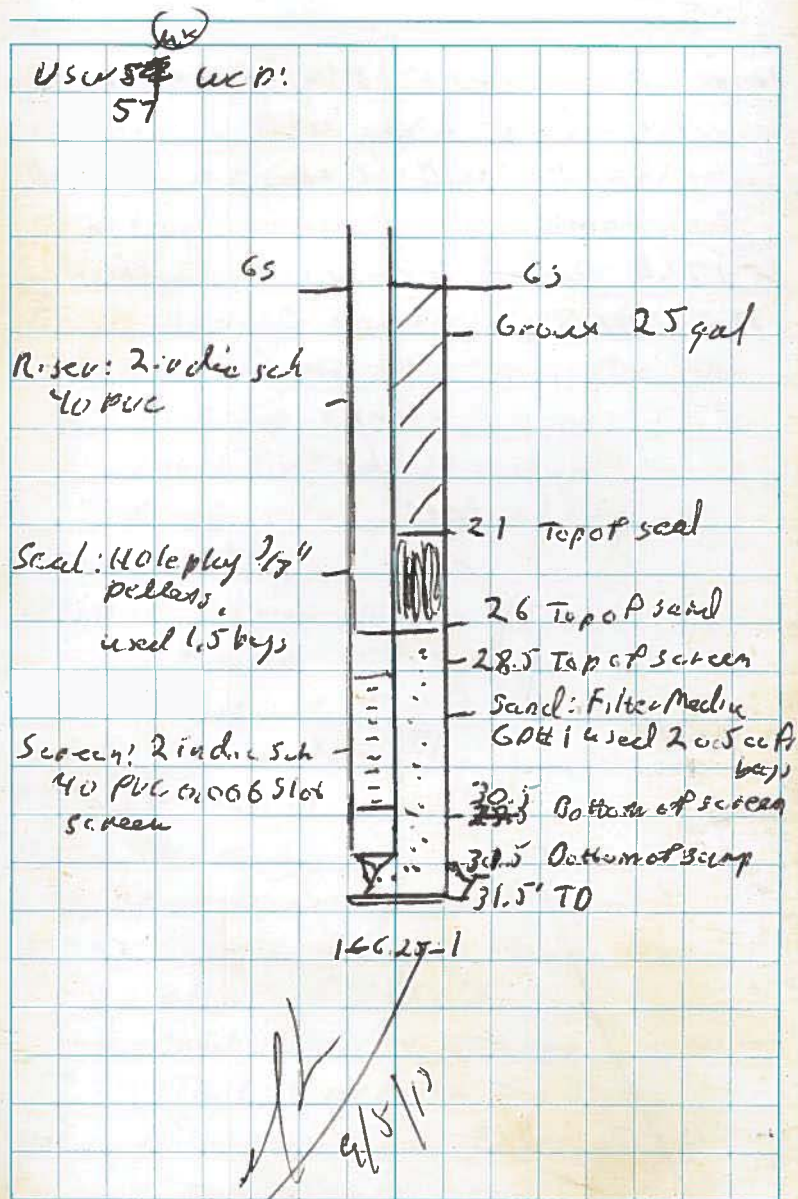 USW 57 WCD:
GS
GS
Grout 25 gal
Riser: 2 in dia sch
40 PVC
21 Top of seal
Seal: Holeplug 3/8"
pellets,
used 1.5 bags
26 Top of sand
28.5 Top of screen
Sand: Filter Media
used 2 0.5 cu ft
bags
Screen: 2 in dia sch
40 PVC 0.006 Slot
screen
30.5 Bottom of screen
Bottom of sump
31.5' TD